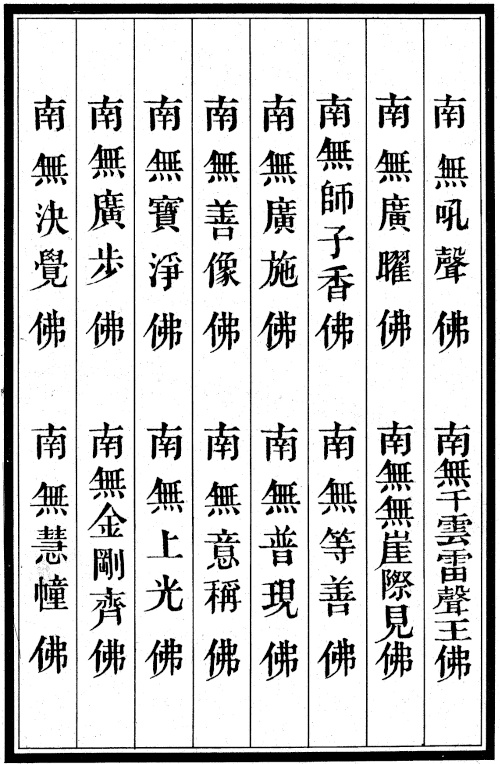 南無吼聲佛　南無千雲雷聲王佛
南無廣曜佛　南無無崖際見佛
南無師子香佛　南無等善佛
南無廣施佛　南無普現佛
南無善像佛　南無意稱佛
南無寶淨佛　南無上光佛
南無廣步佛　南無金剛齊佛
南無決覺佛　南無慧幢佛